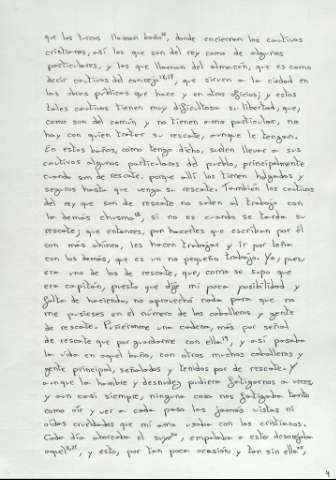 que los turcos llaman baño, donde encierran los cautivos
cristianos, así los que son del rey como de algunos
particulares, y los que llaman del almacén, que es como
decir cautivos del concejo, que sirven a la ciudad en
las obras públicas que hace y en otros oficios; y estos
tales cautivos tienen muy dificultosa su libertad, que,
como son del común y no tienen amo particular, no
hay con quien tratar su rescate, aunque le tengan.
En estos baños, como tengo dicho, suelen llevar a sus
cautivos algunos particulares del pueblo, principalmente
cuando son de rescate, porque allí los tienen holgados y
seguros hasta que venga su rescate. También los cautivos
del rey que son de rescate no salen al trabajo con
la demás chusma, si no es cuando se tarda su
rescate; que entonces, por hacerles que escriban por él
con más ahínco, les hacen trabajar y ir por leña
con los demás, que es un no pequeño trabajo. Yo, pues,
era uno de los de rescate, que, como se supo que
era capitán, puesto que dije mi poca posibilidad y
falta de hacienda, no aprovechó nada para que no
me pusiesen en el número de los caballeros y gente
de rescate. Pusiéronme una cadena, más por señal
de rescate que por guardarme con ella, y así pasaba
la vida en aquel baño, con otros muchos caballeros y
gente principal, señalados y tenidos por de rescate. Y
aunque la hambre y desnudez pudiera fatigarnos a veces,
y aun casi siempre, ninguna cosa nos fatigaba tanto
como oír y ver a cada paso las jamás vistas ni
oídas crueldades que mi amo usaba con los cristianos.
Cada día ahorcaba el suyo, empalaba a este, desorejaba
aquel, y esto, por tan poca ocasión, y tan sin ella,
4